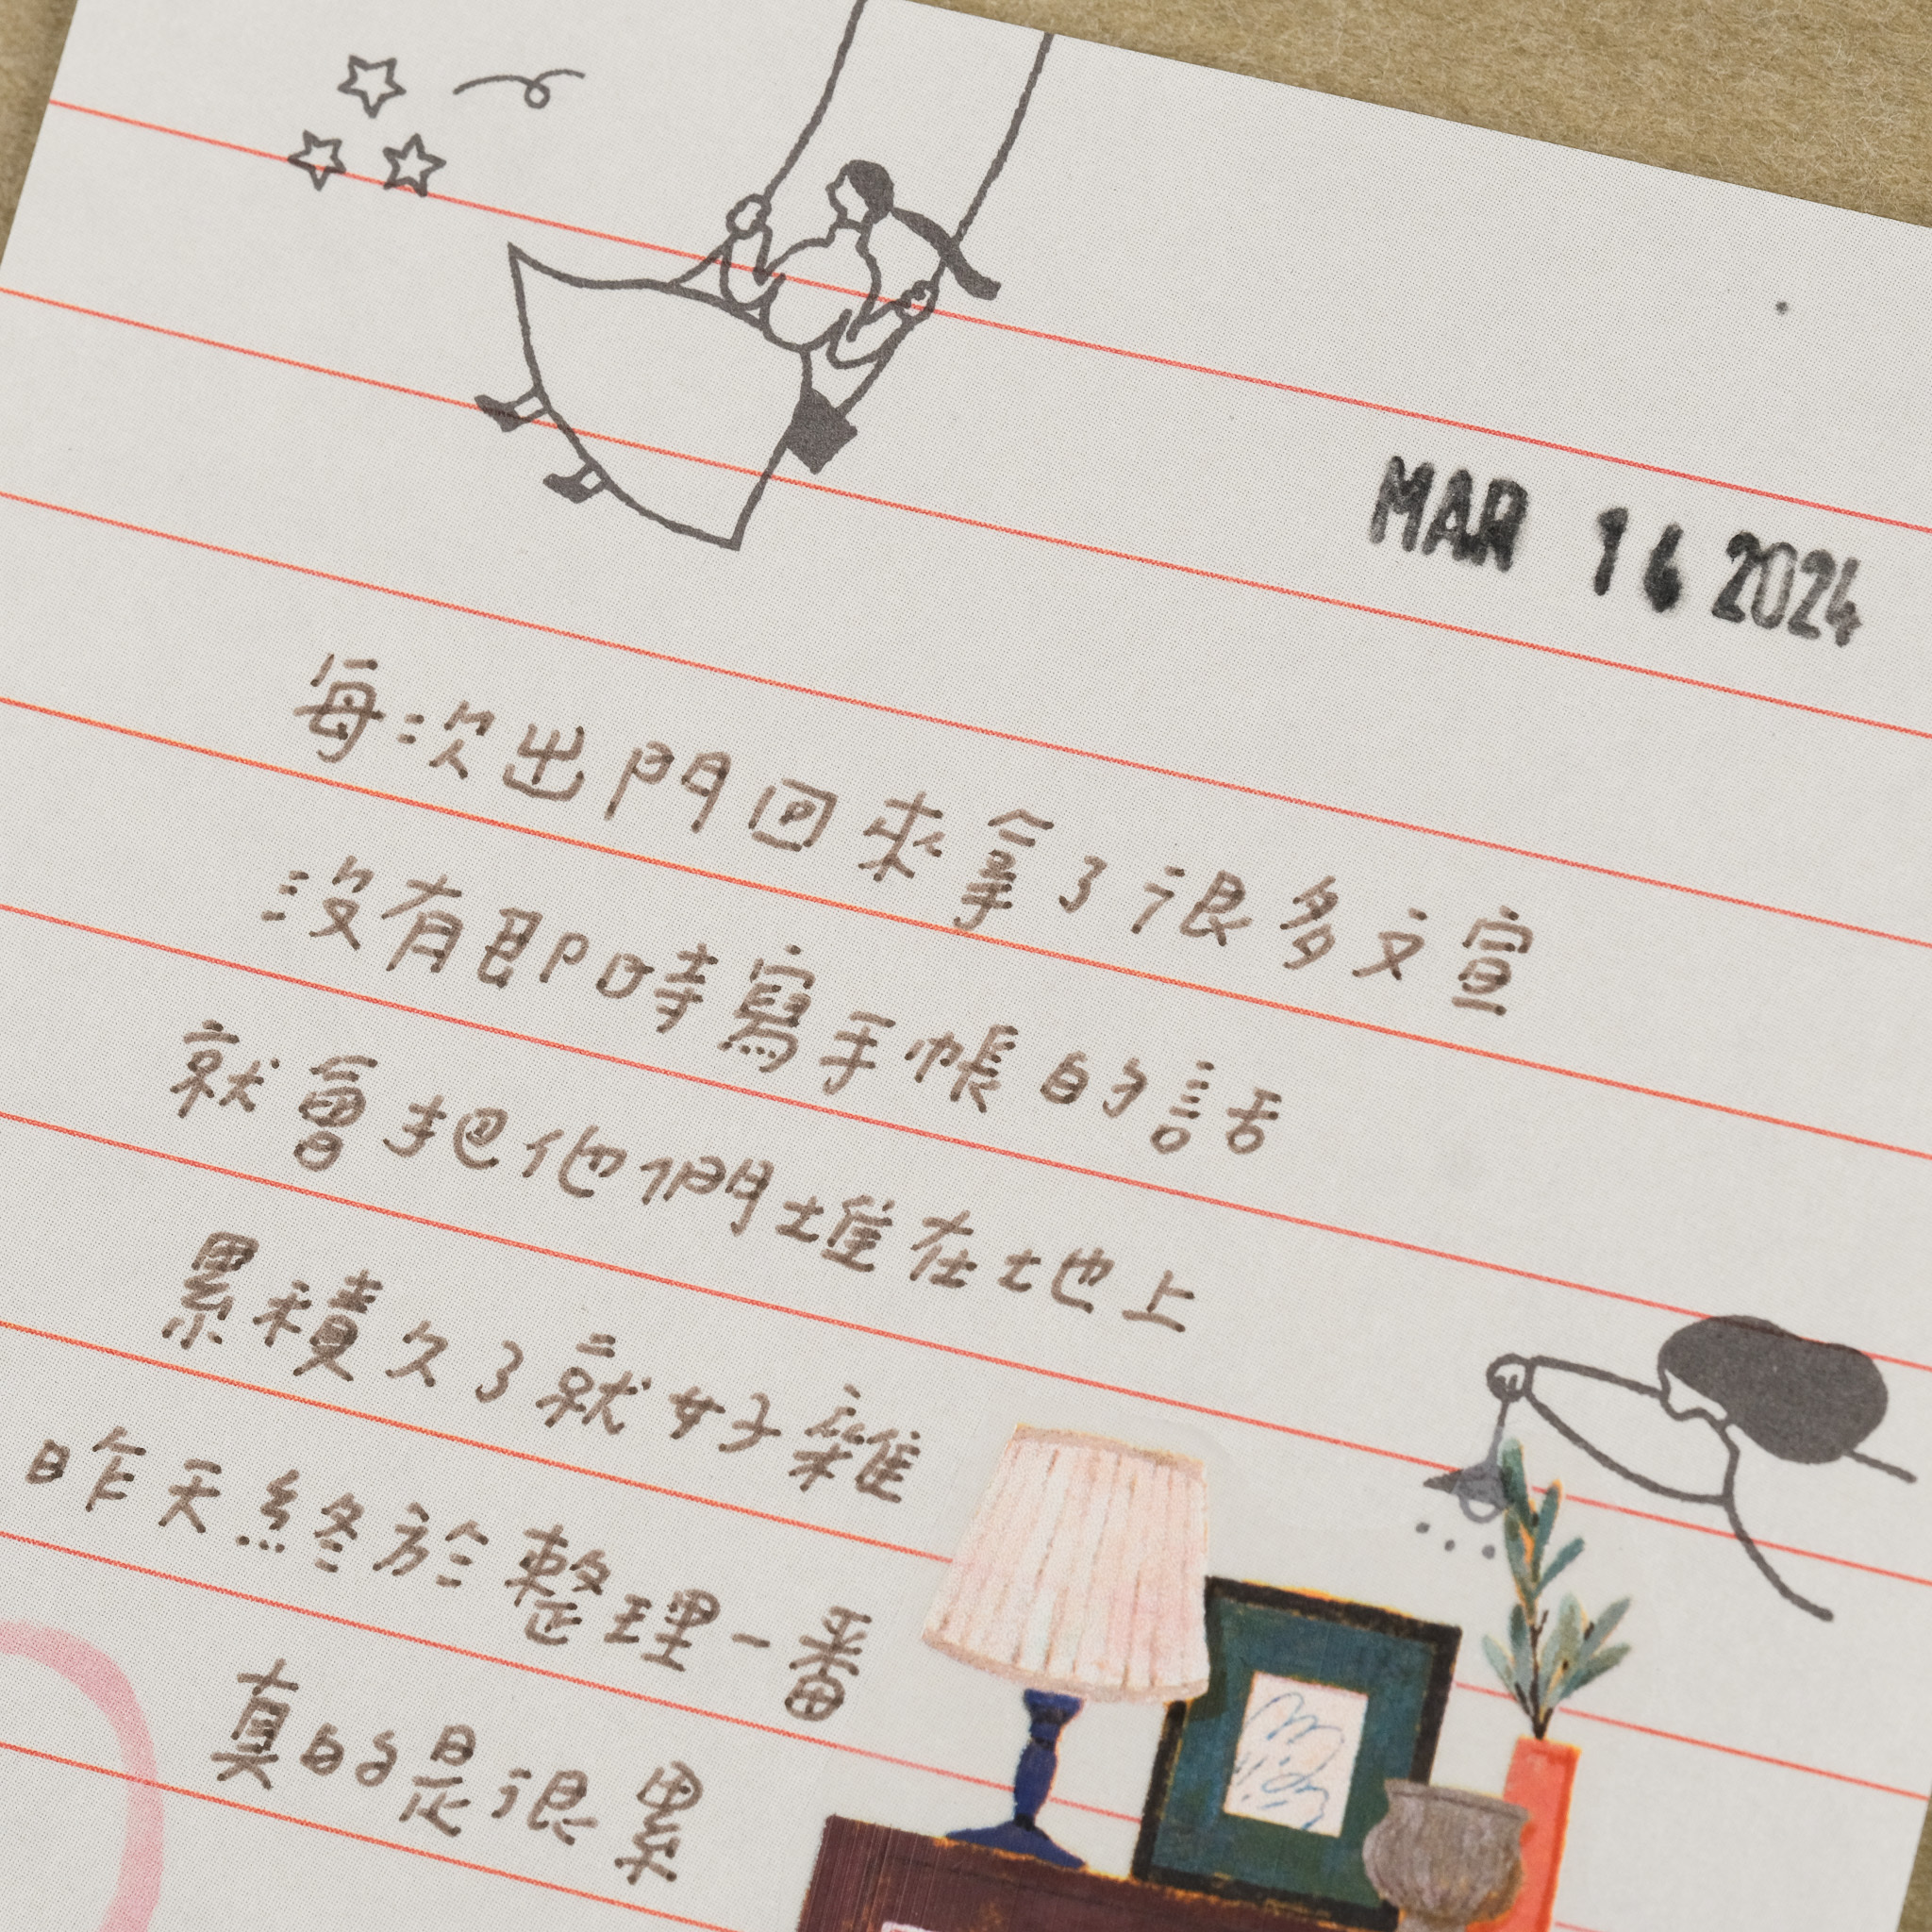 MAR 16 2024
每次出門回來拿了很多文宣
沒有即時寫手帳的話
就會把他們堆在地上
累積久了就好雜
昨天終於整理一番
真的是很累